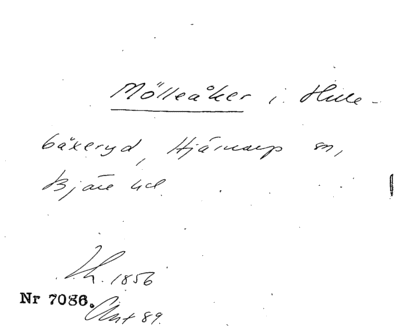 Mölleåker i Hule-
bäkeryd, Hjärnarp sn,
Bjäre hd
Ih. 1856
Nr 7086. Ant 89.